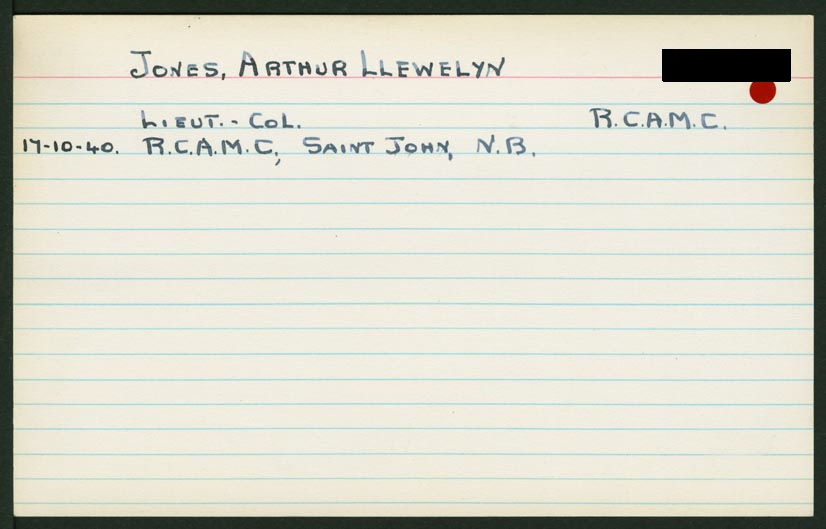 JONES, ARTHUR LLEWELYN
LIEUT.-COL. R.C.A.M.C.
17-10-40. R.C.A.M.C., SAINT JOHN, N.B.